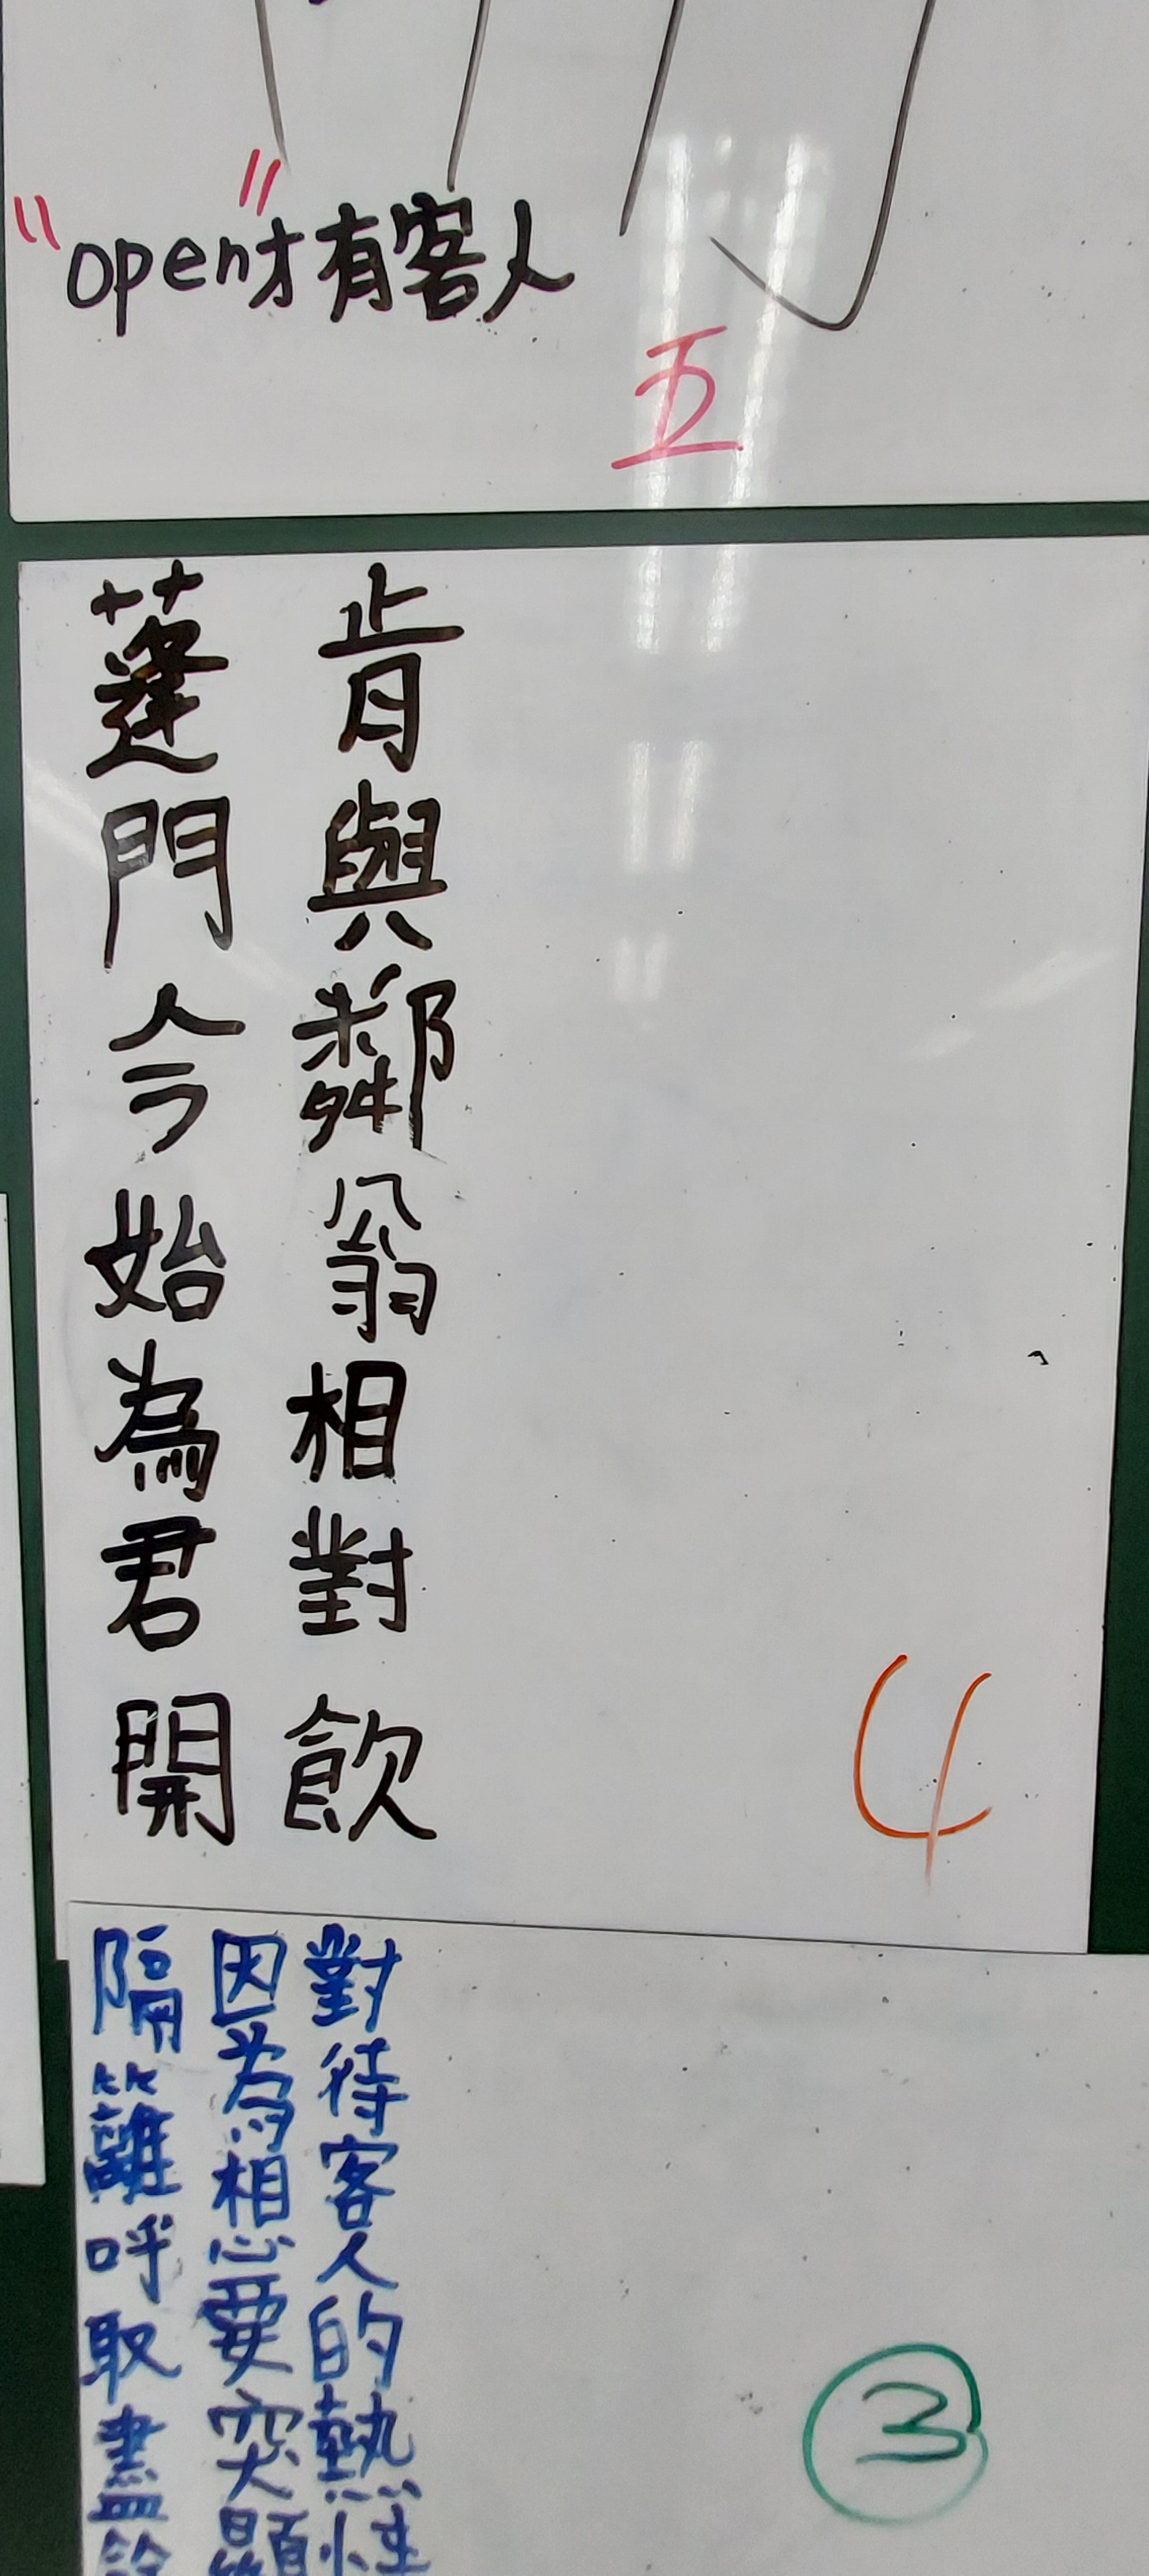 "open"才有客人
五
蓬門今始為君開
肯與鄰翁相對飲
4
隔籬呼取盡
因為想要突顯
對待客人的熱情
3